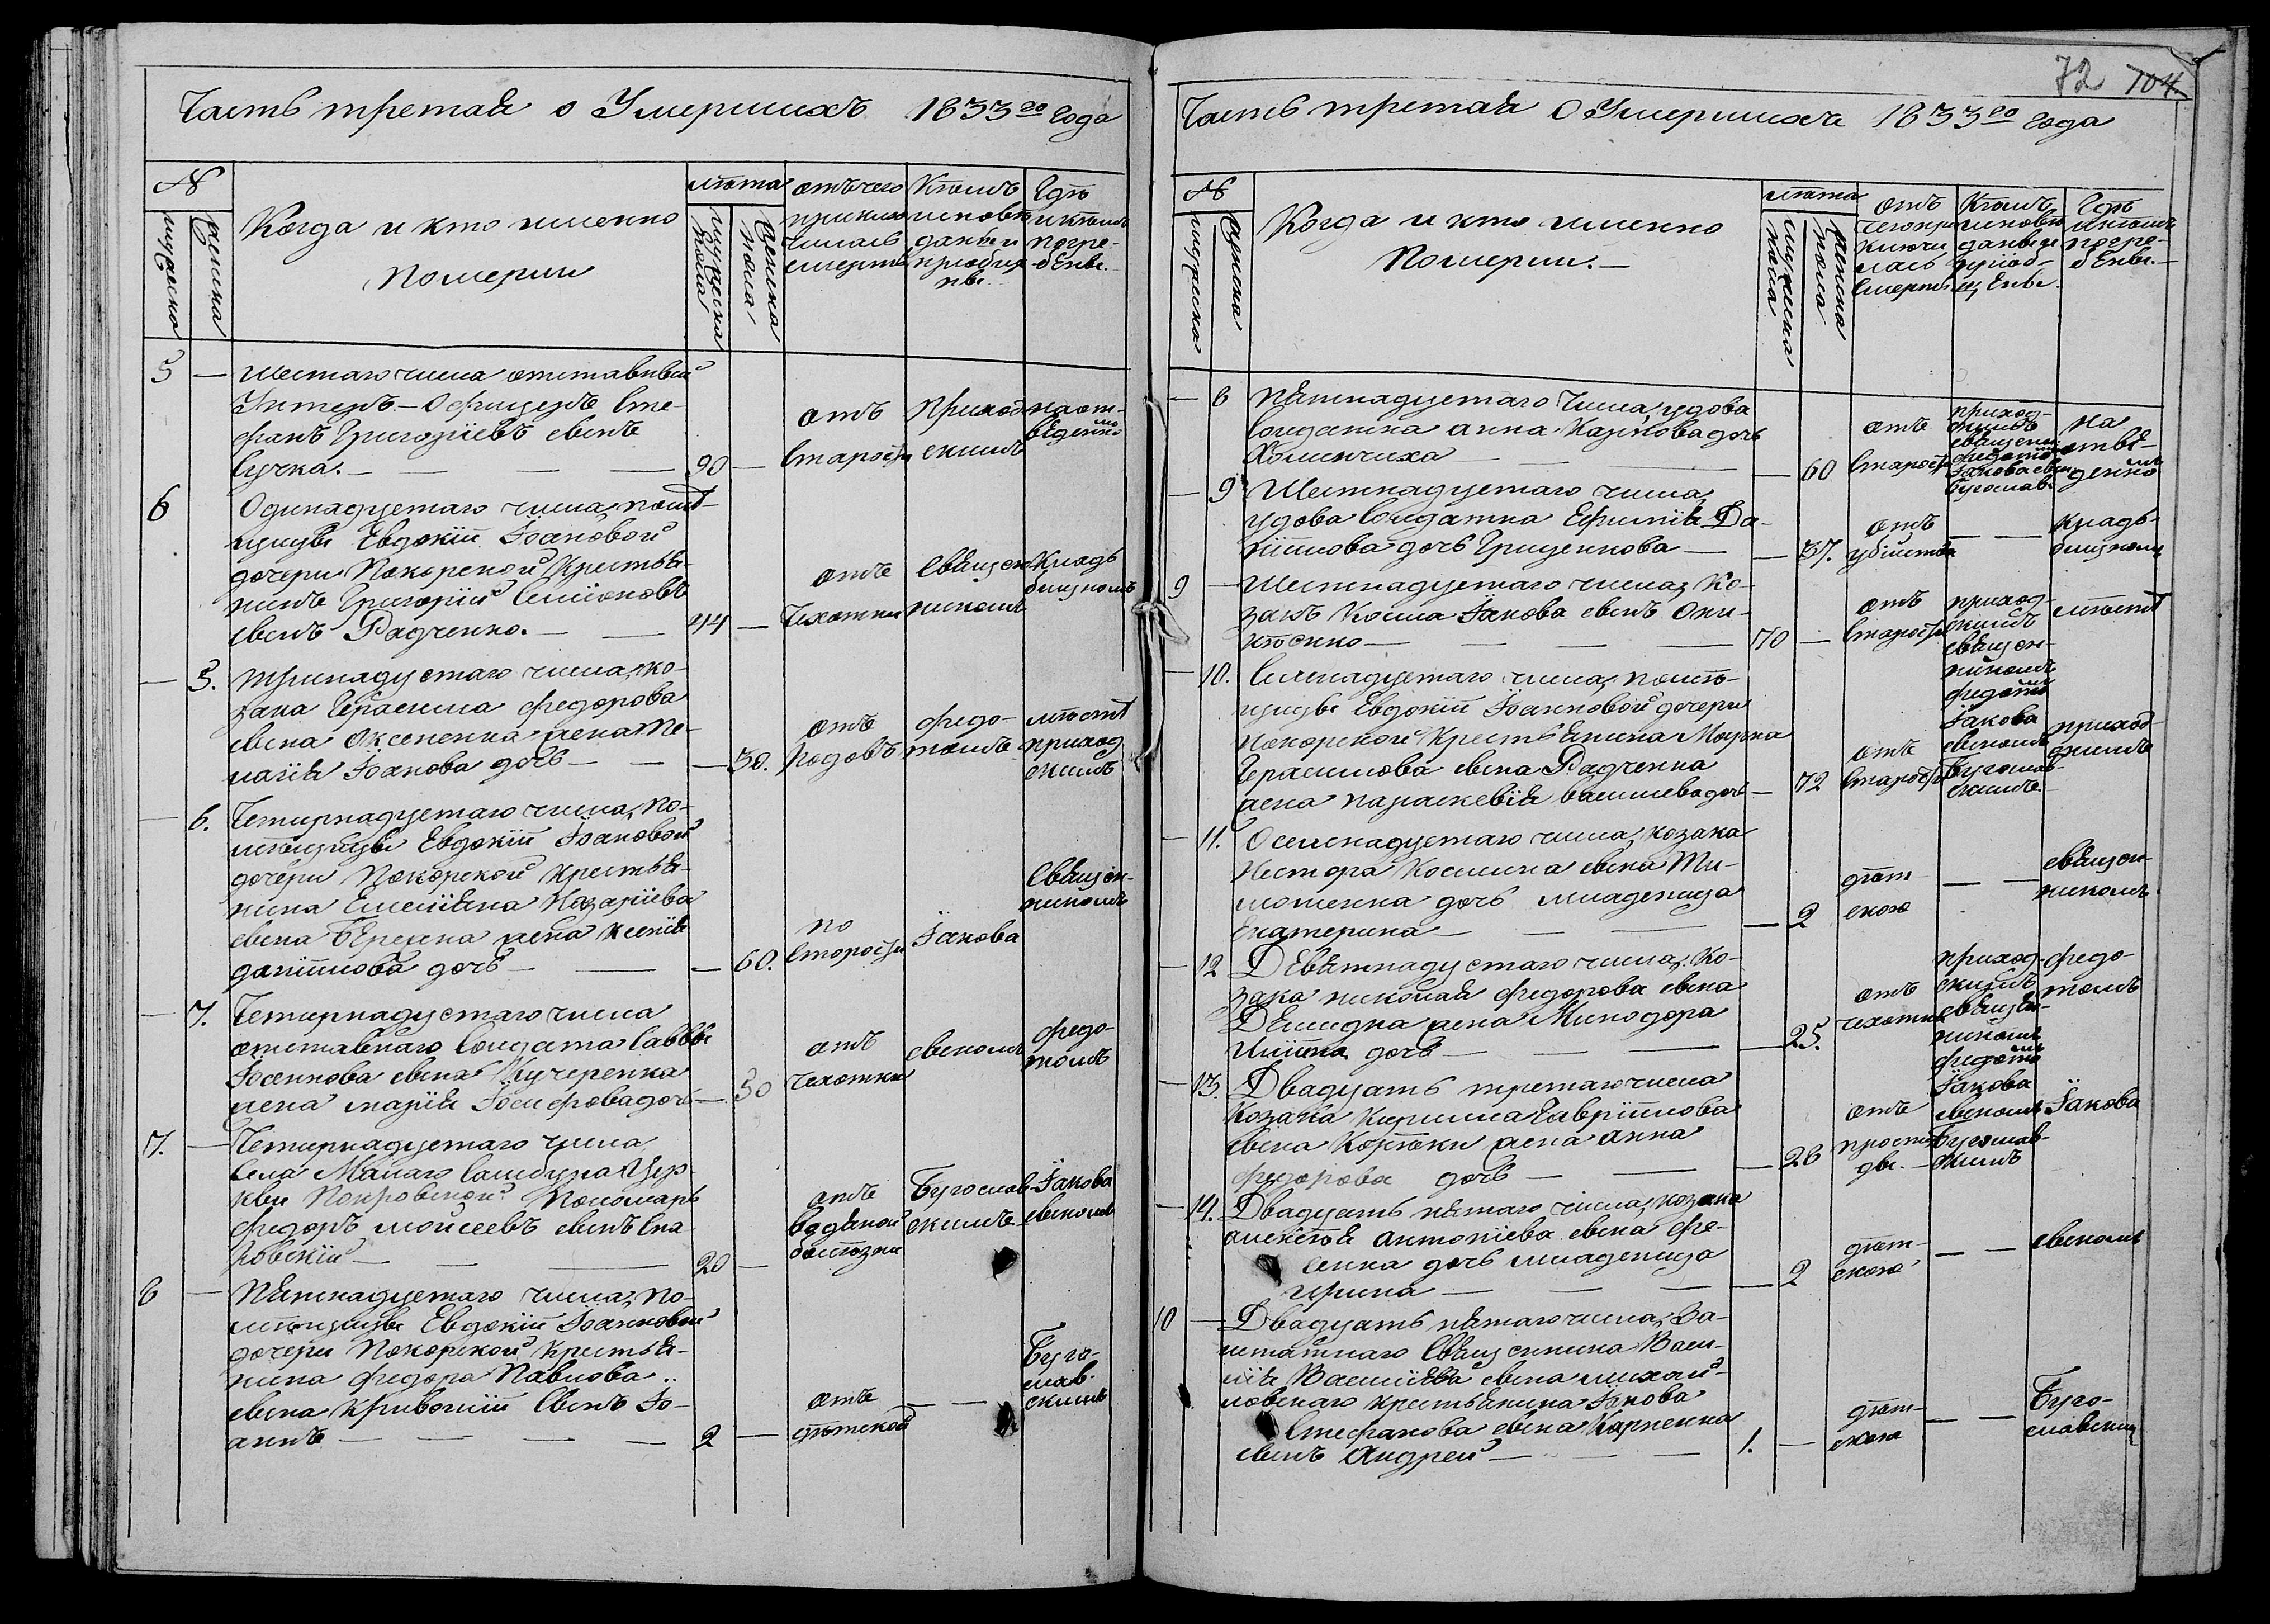 Часть третая о Умершихъ 1833го года
№
мужеска
женска
Когда и кто именно
померли
лѣта
мужеска пола
женска пола
отъ чего
приклю
чилась
смерть
Кѣмъ
исповѣ
даны и
приобщ
ны
Гдѣ
и кѣмъ
погре-
бены.
5 — Шестаго числа отставный
Унтеръ-Офицеръ Сте-
фанъ Григоріевъ сынъ
Сучка. — — — 90 —
отъ
старости
приход
скимъ
на от-
веденно
6 Одинадцетаго числа, помѣ-
щицы Евдокіи Іоановой
дочери Покорской Крестья-
нинъ Григорій Симоновъ
сынъ Радченко. — — 44 —
отъ
Чехотки
священ
никомъ
Кладь
бищномъ
— 5. тринадцетаго числа, ко-
зака Герасима федорова
сына Оксененка жена Ме-
ланія Іоанова дочь — — — 50.
отъ
Родовъ
федо-
томъ
мѣстѣ
приход
скимъ
— 6. Четирнадцетаго числа, по-
мѣщицы Евдокіи Іоановой
дочери Покорской Крестья-
нина Емеліяна Назаріева
сына Бережна жена Ксенія
даніилова дочь — — — 60.
по
старости
Іакова
Священ-
никомъ
— 7. Четирнадцетаго числа
отставнаго Солдата Саввы
сына Кучеренка
жена марія Іосифова дочь — 50
отъ
чехотки
сыномъ
федо-
томъ
7. — Четирнадцетаго числа
села Малаго Самбура Цер-
кви Покровской Пономарь
федоръ моисеевъ сынъ Сла
ковскій — — — 20 —
отъ
водяной
болѣзни
Бугослав
скимъ
Іакова
сыномъ
8 — Пятнадцетаго числа, по-
мѣщицы Евдокіи Іоанновой
дочери Покорской Крестья-
нина федора Павлова
сына Кривошіи Сынъ Іо-
аннъ — — — — 2 —
отъ
дѣтской
— —
Буго-
слав-
скимъ
72 104
Часть третая О Умершихъ 1833го года
№
мужеска
женска
Когда и кто именно
Померли. —
лѣта
мужеска пола
женска пола
отъ
Чего при
ключи
лась
Смерть
Кѣмъ
исповѣ
даны и
приоб-
щены
Гдѣ
и кѣмъ
погре-
бены. —
— 8 пятнадцетаго Числа, удова
Солдатка анна Карпова дочь
Хоменчиха — — — 60
отъ
Старости
приход-
скимъ
священ
федото
Іакова сын
Бугослав
на
отве-
денно
— 9 Шестнадцетаго числа,
удова Солдатка Ефимія Да-
ніилова дочь Грищенкова — — 37.
отъ
убійства
— —
кладь-
бищномъ
9 — Шестнадцетаго числа, Ко-
закъ Косма Іакова сынъ Они-
кѣенко — — — 70 —
отъ
Старости
приход-
скимъ
священ-
никомъ
федото
мѣстѣ
— 10. Семнадцетаго числа, помѣ-
щицы Евдокіи Іоанновой дочери
покорской Крестьянина Марка
Герасимова сына Радченка
жена параскевія василиева дочь — 72
отъ
Старости
Іакова
сыномъ
Бугослав-
скимъ
приход-
скимъ
— 11. Осемнадцетаго числа, козака
Нестора Космина сына Ти-
мошенка дочь младеница
Екатерина — — — — 2
дѣт
ской
— —
священ-
никомъ
— 12 Девятнадцетаго числа, Ко-
зака николая федорова сына
Демидка жена Минодора
дочь — — — 25.
отъ
чехотки
приход-
скимъ
священ-
никомъ
федото
федо-
томъ
— 13. Двадцать третаго числа
Козака Кирилла Гавріилова
сына Корѣки жена анна
федорова дочь — — — 28
отъ
просту
ды. —
Іакова
сыномъ
Бугослав-
скимъ
Іакова
— 14. Двадцать пятаго числа, козака
алексѣя антоніева сына фе-
сенка дочь младеница
ирина — — — — 2
дѣт-
ской
— —
сыномъ
10 — Двадцать пятаго числа, За-
штатнаго Священика Васи-
лія Василіева сына михай-
ловскаго крестьянина Іакова
Стефанова сына Карпенка
сынъ Андрей — — — 1. —
дѣт-
ской
— —
Буго-
славским